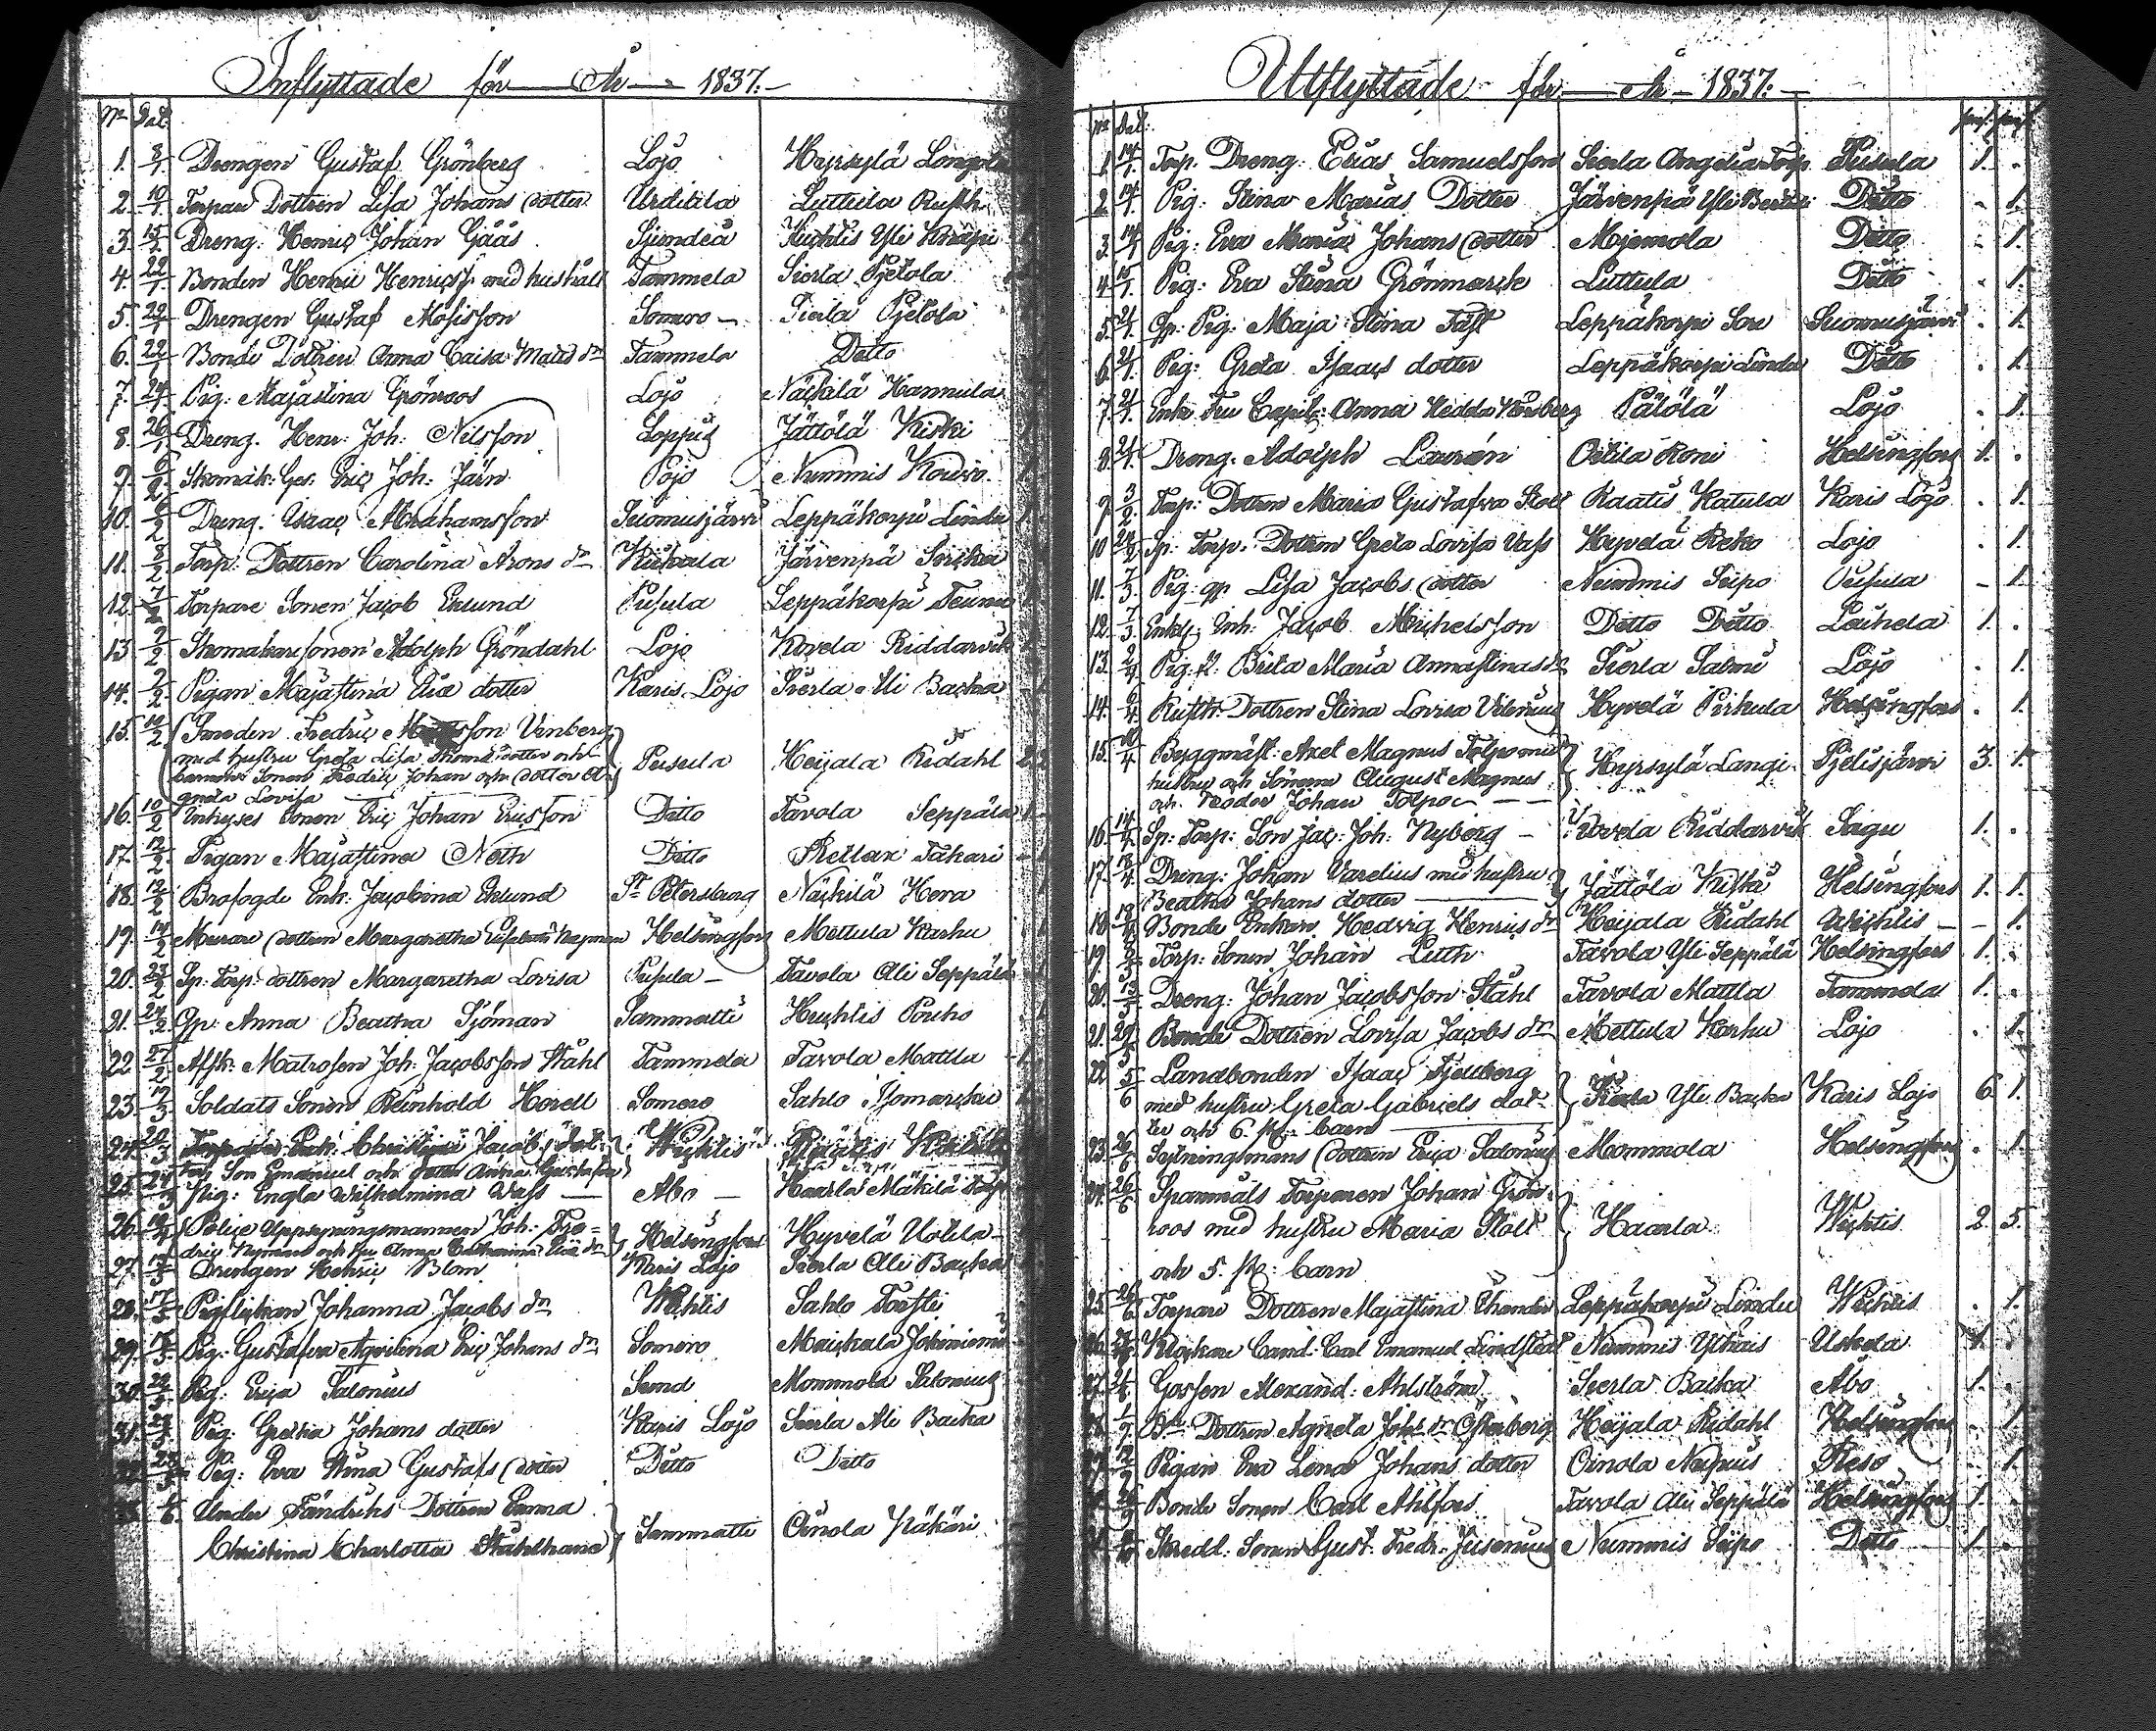 Inflyttade för År 1837.
No Dat.
1. 8/1 Drengen Gustaf Grönberg Lojo Hyrsylä
2. 10/1 Torpare Dottren Lisa Johans dotter Luttula Rusth.
3. 15/2 Dreng. Henric Johan Gåås Sjundeå Huhtis Yli Knapi
4. 22/1 Bonden Henric Henricss. med hushåll Tammela Sierla Pjetola
5. 22/1 Drengen Gustaf Mosisson Somero Sierla Pjetola
6. 22/1 Bonde Dottren Anna Caisa Matts dr Tammela Detto
7. 24/1 Pig: Majastina Grönroos Lojo Näckilä Hannula
8. 26/1 Dreng. Henr: Joh: Nilsson Loppis Jättölä Kiski
9. 6/2 Skomak: Ges. Eric Joh: Järn Pojo Nummis
10. 6/2 Dreng. Isaac Abrahamsson Suomusjärvi Leppäkorpi Lindu
11. 8/2 Torp: Dottren Carolina Arons dr Kiikala Järvenpä
12. 7/2 Torpare Sonen Jacob Eklund Pusula Leppäkorpi
13. 7/2 Skomakaresonen Adolph Gröndahl Lojo Kovela Riddarvik
14. 7/2 Pigan Majastina Eliæ dotter Karis Lojo Sierla Ali Backa
15. 10/2 Smeden Fredric Vinberg
med hustru Greta Lisa dotter och
barnen Sonen Fredric Johan och Dotter A- Pusula Heijala Ridahl 2 2
gneta Lovisa
16. 10/2 Inhyses Sonen Eric Johan Ericsson Ditto Tavola Seppälä
17. 12/2 Pigan Majastina Ditto Retlax Takari
18. 12/2 Brofogde Enk. Jacobina Eklund St Petersburg Näckilä Hera
19. 14/2 Murare dottren Margaretha Helsingfors Mettula Karhu
20. 23/2 Sp: Torp: dottren Margaretha Lovisa Pusula Tavola Ali Seppälä
21. 24/2 Gp. Anna Beatha Sjöman Sammatti Huhtis
22. 27/2 Afsk: Matrosen Joh: Jacobsson Ståhl Tammela Tavola Mattla
23. 19/3 Soldats Sonen Reinhold Horell Somero Sahlo
24. 20/3 Wichtis
Son Emanuel och Anna
25. 24/3 Pig: Engla Wilhelmina Wass Åbo Haarla Mäkilä
26. 19/4 Police Uppsyningsmannen Joh: Fre-
dric Nyman och Hu Anna Catharina dr Helsingfors Hyvelä Uotila
27. 17/5 Drengen Henric Blom Karis Lojo Sierla Ali Backa
28. 17/5 Johanna Jacobs dr Wichtis Sahlo
29. 18/5 Pig: Gustafva Agvilina Eric Johans dr Somero
30. 22/5 Pig: Erica Salonius Sund Mommola
31. 27/5 Pig: Gretha Johans dotter Karis Lojo Sierla Ali Backa
Pig: Eva Stina Gustafs dotter Ditto Ditto
Under Fändriks Dottren Emma
Christina Charlotta Sammatti Oinola
Utflyttade för År 1837.
No Dat.
1 14/1 Torp. Dreng: Elias Samuelsson Sierla Pusula 1. .
2 14/1 Pig: Stina Marias Dotter Järvenpä Yli Detto . 1.
3 14/1 Pig: Eva Maria Johans dotter Mäjamola Detto . 1.
4 15/1 Pig: Eva Stina Grönmarck Luttula Detto . 1.
5. 21/1 Gp. Pig: Maja Stina Leppäkorpi Suomusjärvi . 1.
6 21/1 Pig: Greta Isaacs dotter Leppäkorpi Lindu Detto . 1.
7. 21/1 Enk: Fru Capit: Anna Hedda Pålölä Lojo . 1.
8. 21/1 Dreng: Adolph Laurén Oitila Helsingfors 1. .
9. 3/2 Torp: Dottren Maria Gustafva Stolt Raatis Katula Karis Lojo . 1.
10 24/2 Sp: Torp: Dottren Greta Lovisa Vass Hyvelä Lojo . 1.
11. 7/3 Pig: gp Lisa Jacobs dotter Nummis Seipo Pusula - 1.
12. 7/3 Enkl: Inh: Jacob Michelsson Detto Detto Laihela 1. .
13. 2/4 Pig: Brita Maria Annastinas dr Sierla Salmi Lojo . 1.
14. 6/4 Rusth: Dottren Stina Lovisa Hyvelä Pirkula Helsingfors . 1.
15. 10/4 Byggmäst: Axel Magnus Tolpo med
hustru och Sönerna August Magnus Hyrsylä Langi. 3. 1.
och Teodor Johan Tolpo
16 14/4 Sp: Torp: Son Jac: Joh: Nyberg Kovela Riddarvik Sagu 1. .
17. 18/4 Dreng: Johan Varelius med hustru
Beatha Johans dotter Jättöla Helsingfors 1. 1.
18 18/4 Bonde Enkan Hedvig Henrics dr Heijala Ridahl Wichtis - 1.
19. Torp: Sonen Johan Luth Tavola Yli Seppälä Helsingfors 1. .
20. 13/5 Dreng: Johan Jacobsson Ståhl Tavola Mattla Tammela 1. .
21. Bonde Dottren Lovisa Jacobs dr Mettula Karhu Lojo . 1.
22 5/6 Landbonden Isaac
med hustru Greta Gabriels dot- Yli Backa Karis Lojo 6 1.
ter och 6. barn
23 26/6 dottren Erica Salonius Mommola Helsingfors . 1.
24. 26/6 Spanmåls Torparen Johan Grön-
roos med hustru Maria Stolt Haarla Wichtis 2. 5.
och 5. barn
25. 26/6 Torpare Dottren Majastina Leppäkorpi Lindu Wichtis . 1.
Klockare Cand: Carl Emanuel Lindstedt Nummis Uskela 1. .
Gossen Alexand: Ahlström Sierla Backa Åbo 1. .
Dottren Agneta Joh: dr Österberg Heijala Ridahl Helsingfors . 1.
Pigan Eva Lena Johans dotter Oinola Reso . 1.
Bonde Sonen Carl Ahlfors Tavola Ali Seppälä Helsingfors 1. .
Skredd: Sonen Gust: Fredr: Nummis Seipo Detto 1. .